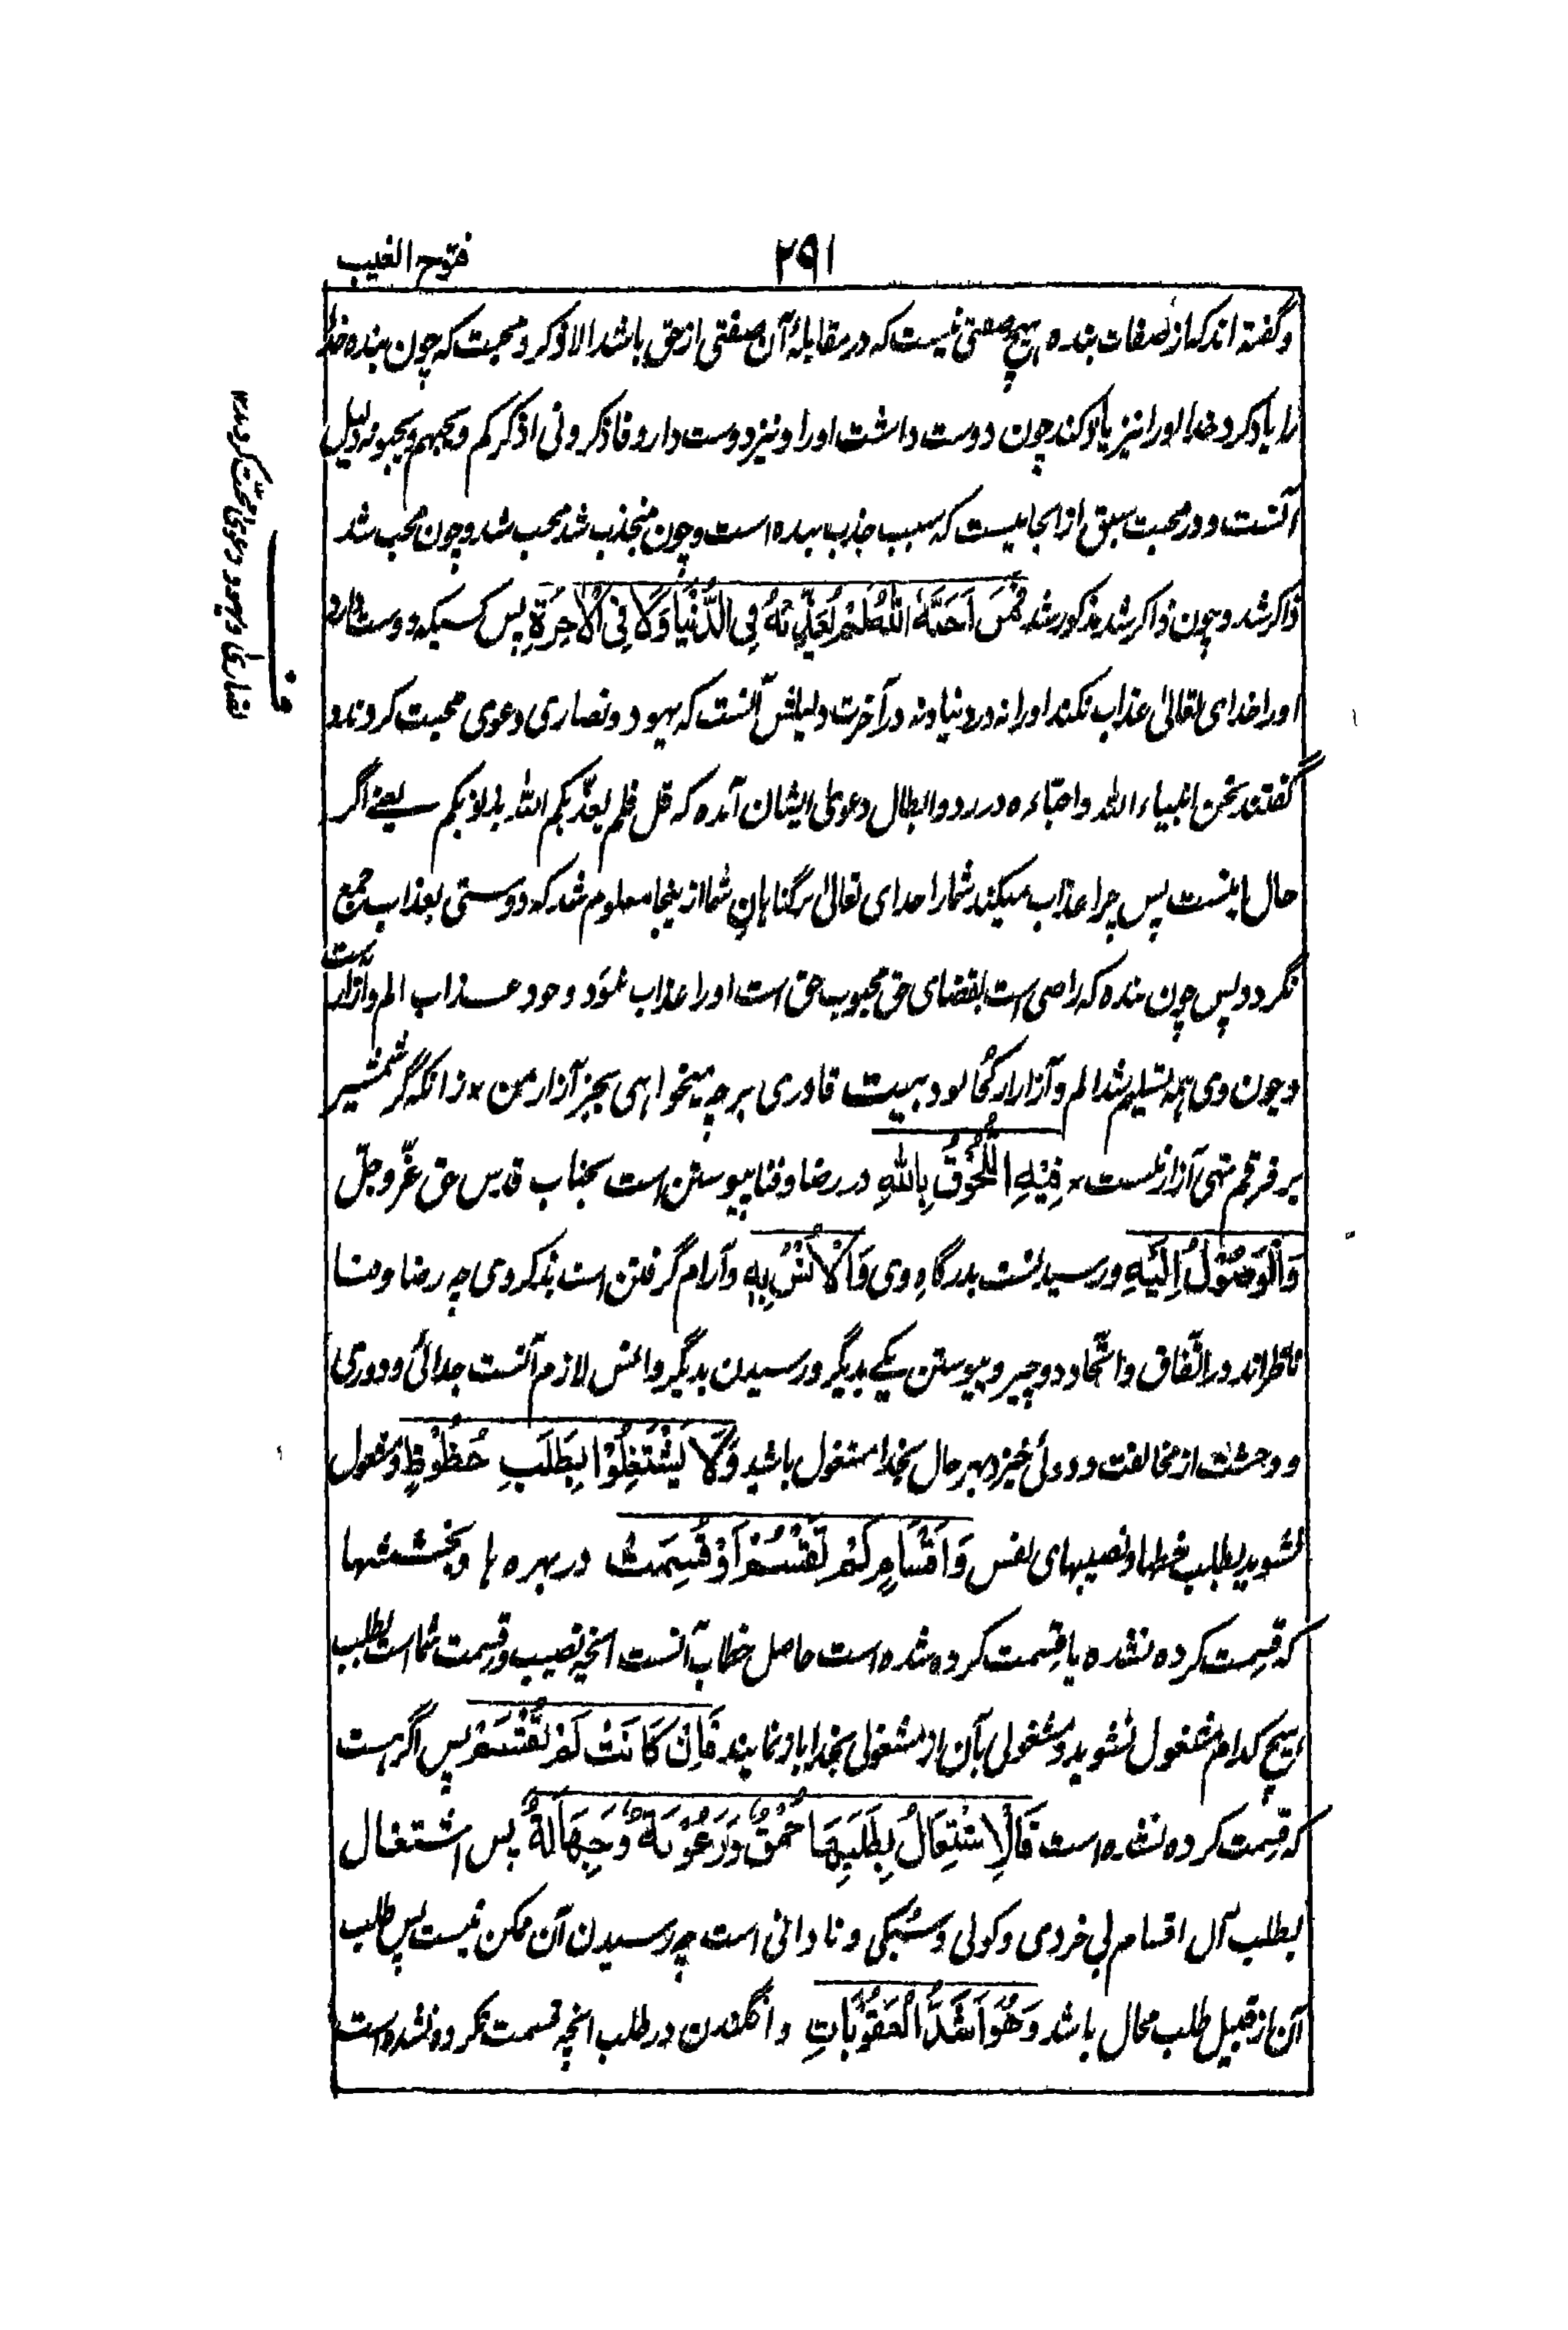 ۲۹۱
فتوح الغیب
وگفته اند که از صفات بنده هیچ صفتی نیست که در مقابلهٔ آن صفتی از حق باشد الا ذکر و محبت که چون بنده خدا
را یاد کرد خدا او را نیز یاد کند چون دوست داشت او را و نیز دوست دارد فاذکرونی اذکرکم و یحبهم و یحبونه دلیل
آنست و در محبت سبق از انجا نیست که سبب جذب بنده است و چون منجذب شد محب شد و چون محب شد
ذاکر شد و چون ذاکر شد مذکور شد فَمَنْ اَحَبَّهُ اللهُ لَمْ یُعَذِّبْهُ فِی الدُّنْیَا وَلَا فِی الْاٰخِرَةِ پس کسیکه دوست دارد
او را خدای تعالیٰ عذاب نکند او را نه در دنیا و نه در آخرت دلیلش آنست که یهود و نصاری دعوی محبت کردند و
گفتند نحن ابناء الله و احباءه در رد و ابطال دعوی ایشان آمده که قل فلم یعذبکم الله بذنوبکم یعنے اگر
حال اینست پس چرا عذاب میکند شما را خدای تعالیٰ برگناهان شما ازینجا معلوم شد که دوستی بعذاب جمع
نگردد پس چون بنده که راضی است بقضای حق محبوب حق است او را عذاب نبود و خود عذاب الم و آزار است
و چون وی همه تسلیم شد الم و آزار از کجا بود بیت قادری هرچه میخواهی بجز آزار من × زانکه گر شمشیر
بر فرقم نهی آزار نیست × فِیْهِ اللُّحُوْقُ بِاللهِ در رضا و فنا پیوستن است بجناب قدس حق عزّ و جلّ
وَالْوُصُوْلُ اِلَیْهِ و رسیدنست بدرگاه وی وَالْاُنْسُ بِهِ و آرام گرفتن است بذکر وی چه رضا و فنا
ناظراند در اتّفاق و اتّحاد دو چیز و پیوستن یکے بدیگر و رسیدن بدیگر و انس لازم آنست جدائی و دوری
و وحشت از مخالفت و دوئی خیزد بهر حال بخدا مشغول باشید وَلَا یَشْتَغِلُوْا بِطَلَبِ حُظُوْظٍ و مشغول
نشوید بطلب حظها و نصیبهای نفس وَاَقْسَامٍ لَمْ تُقْسَمْ اَوْ قُسِمَتْ در بهره ها و بخششها
که قسمت کرده نشده یا قسمت کرده شده است حاصل خطاب آنست انچه نصیب و قسمت شما است بطلب
هیچ کدام مشغول نشوید و مشغولی بآن از مشغولی بخدا باز نمایند فَاِنْ کَانَتْ لَمْ تُقْسَمْ پس اگر هست
که قسمت کرده نشده است فَالْاِشْتِغَالُ بِطَلَبِهَا حُمْقٌ وَرَعُوْنَةٌ وَجِهَالَةٌ پس اشتغال
بطلب آن اقسام بی خردی و کولی و سبکی و نادانی است چه رسیدن آن ممکن نیست پس طلب
آن از قبیل طلب محال باشد وَهُوَ اَشَدُّ الْعُقُوْبَاتِ و افگندن در طلب انچه قسمت کرده نشده است